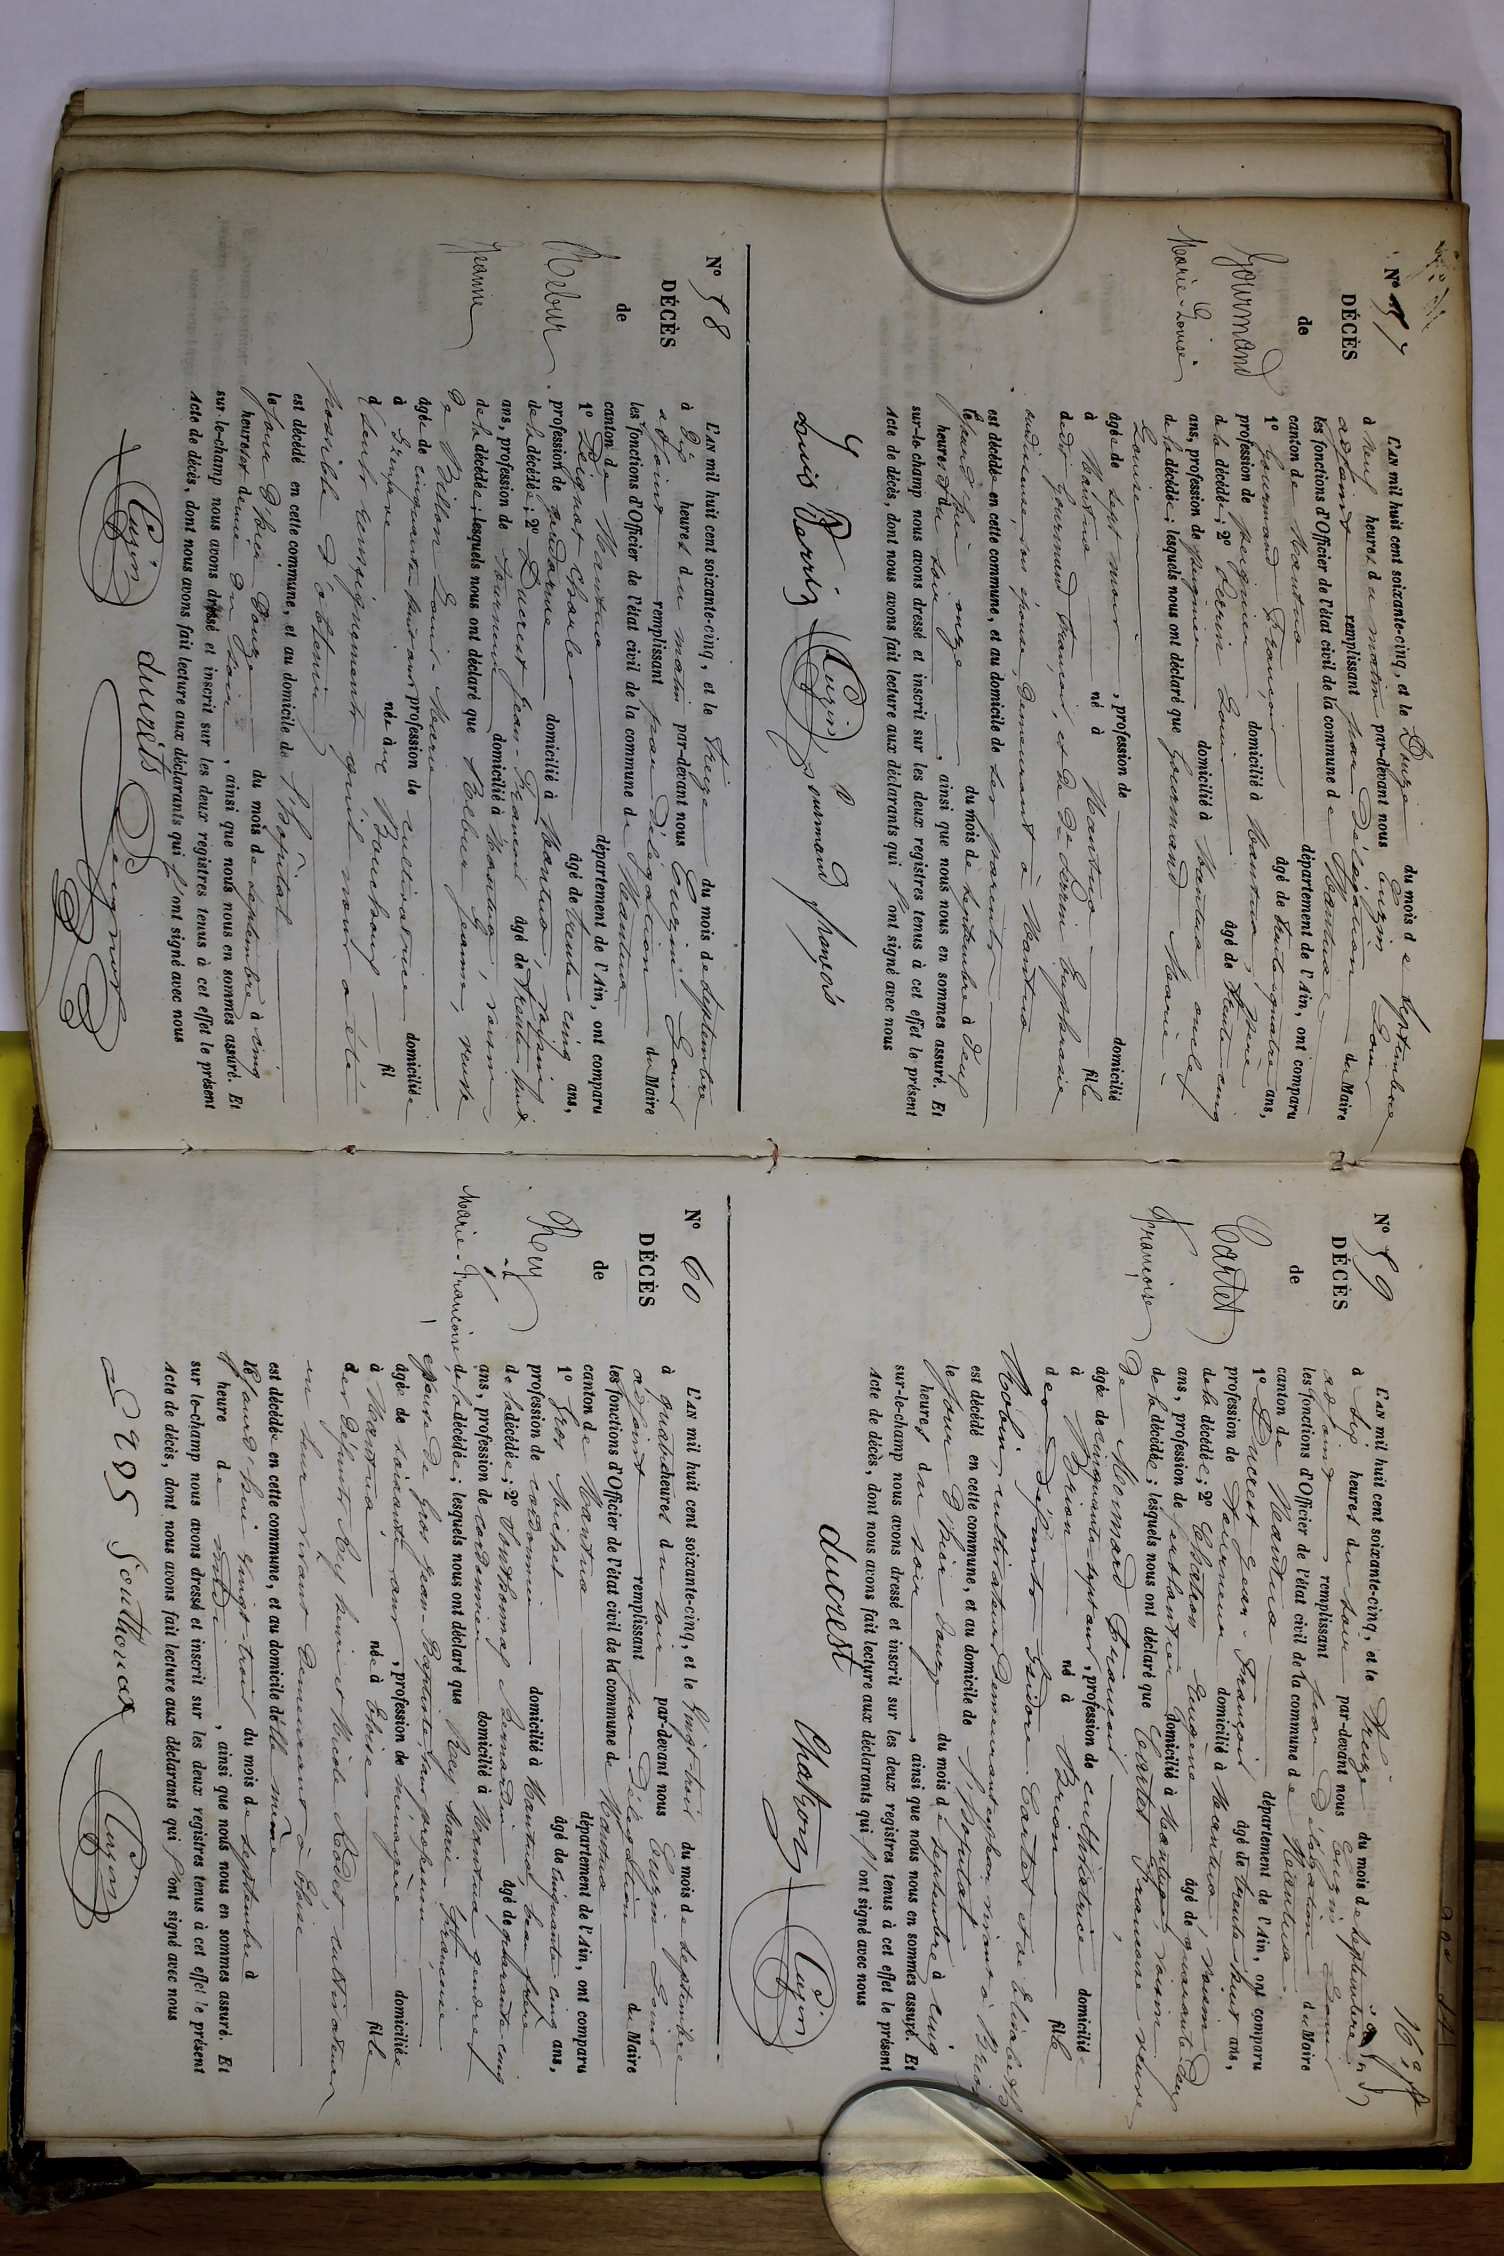 N° 57
DÉCÈS
de
Gourmand
Marie-Louise
L'AN mil huit cent soixante-cinq, et le Douze du mois de Septembre
à neuf heures du matin par-devant nous Cuzin Louis
adjoint remplissant par délégation du Maire
les fonctions d'Officier de l'état civil de la commune de Nantua
canton de Nantua département de l'Ain, ont comparu
1° Gourmand François âgé de trente-quatre ans,
profession de peignier domicilié à Nantua, père
de la décédée; 2° Perrin Louis âgé de trente-cinq
ans, profession de peignier domicilié à Nantua, oncle
de la décédée; lesquels nous ont déclaré que Gourmand Marie-
Louise
âgée de sept mois, profession de domicilié
à Nantua né à Nantua fille
de dit Gourmand François, et de Perrin Euphrasie
sa épouse, demeurant à Nantua
est décédée en cette commune, et au domicile de ses parents
le onze du mois de septembre à deux
heures du soir, ainsi que nous nous en sommes assuré. Et
sur-le-champ nous avons dressé et inscrit sur les deux registres tenus à cet effet le présent
Acte de décès, dont nous avons fait lecture aux déclarants qui l'ont signé avec nous
Louis Perrin Cuzin gourmand françois
N° 58
DÉCÈS
de
Rebur
Jeanne
L'AN mil huit cent soixante-cinq, et le treize du mois de Septembre
à dix heures du matin par-devant nous Cuzin Louis
adjoint remplissant par délégation du Maire
les fonctions d'Officier de l'état civil de la commune de Nantua
canton de Nantua département de l'Ain, ont comparu
1° Deignot Charles âgé de trente cinq ans,
profession de gendarme domicilié à Nantua, voisin
de la décédée; 2° Ducrest Jean-François âgé de trente huit
ans, profession de tourneur domicilié à Nantua, voisin
de la décédée; lesquels nous ont déclaré que Rebur Jeanne, veuve
de Billon Louis-Marie
âgée de cinquante huit ans, profession de cultivatrice domiciliée
à née à fil
d dont renseignements qu'il nous a été
possible d'obtenir
est décédé en cette commune, et au domicile de l'hôpital
le jour d'hier douze du mois de septembre à cinq
heures et demie du soir, ainsi que nous nous en sommes assuré. Et
sur-le-champ nous avons dressé et inscrit sur les deux registres tenus à cet effet le présent
Acte de décès, dont nous avons fait lecture aux déclarants qui l'ont signé avec nous
Cuzin ducrest Deignot
N° 59
DÉCÈS
de
Cartet
Françoise
L'AN mil huit cent soixante-cinq, et le treize du mois de septembre
à six heures du soir par-devant nous Cuzin Louis
adjoint remplissant par délégation du Maire
les fonctions d'Officier de l'état civil de la commune de Nantua
canton de Nantua département de l'Ain, ont comparu
1° Ducrest Jean-François âgé de trente huit ans,
profession de tourneur domicilié à Nantua, voisin
de la décédée; 2° Chatron Eugène âgé de quarante deux
ans, profession de ferblantier domicilié à Nantua, voisin
de la décédée; lesquels nous ont déclaré que Cartet Françoise veuve
de Monnard François
âgée de cinquante sept ans, profession de cultivatrice domiciliée
à Brion né à Brion fille
de défunts Isidore Cartet et de Elisabeth
Robin, cultivateurs demeurant à Brion
est décédé en cette commune, et au domicile de l'hôpital
le jour d'hier douze du mois de septembre à cinq
heures du soir, ainsi que nous nous en sommes assuré. Et
sur-le-champ nous avons dressé et inscrit sur les deux registres tenus à cet effet le présent
Acte de décès, dont nous avons fait lecture aux déclarants qui l'ont signé avec nous
ducrest Chatron Cuzin
N° 60
DÉCÈS
de
Rey
Marie-Françoise
L'AN mil huit cent soixante-cinq, et le vingt-trois du mois de septembre
à quatre heures du soir par-devant nous Cuzin Louis
adjoint remplissant par délégation du Maire
les fonctions d'Officier de l'état civil de la commune de Nantua
canton de Nantua département de l'Ain, ont comparu
1° Gros Michel âgé de cinquante cinq ans,
profession de cordonnier domicilié à Nantua, beau frère
de la décédée; 2° Southonax Bernardin âgé de quarante cinq
ans, profession de cordonnier domicilié à Nantua gendre
de la décédée; lesquels nous ont déclaré que Rey Marie Françoise
épouse de Gros Jean-Baptiste, sans profession
âgée de soixante ans, profession de ménagère domiciliée
à Nantua née à fille
des défunts Rey et Nicole Rodet, cultivateurs
en leur vivant demeurant à
est décédée en cette commune, et au domicile d'elle même
le jourd'hui vingt-trois du mois de septembre à
heure de midi, ainsi que nous nous en sommes assuré. Et
sur le-champ nous avons dressé et inscrit sur les deux registres tenus à cet effet le présent
Acte de décès, dont nous avons fait lecture aux déclarants qui l'ont signé avec nous
Southonax Cuzin